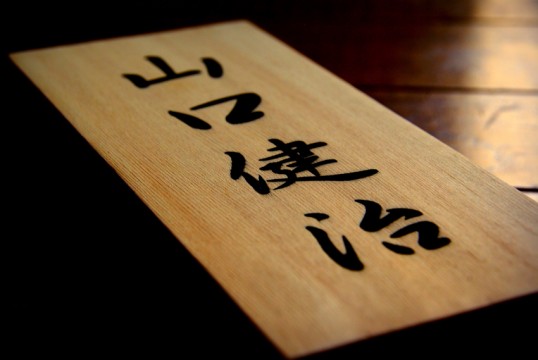 山口健治